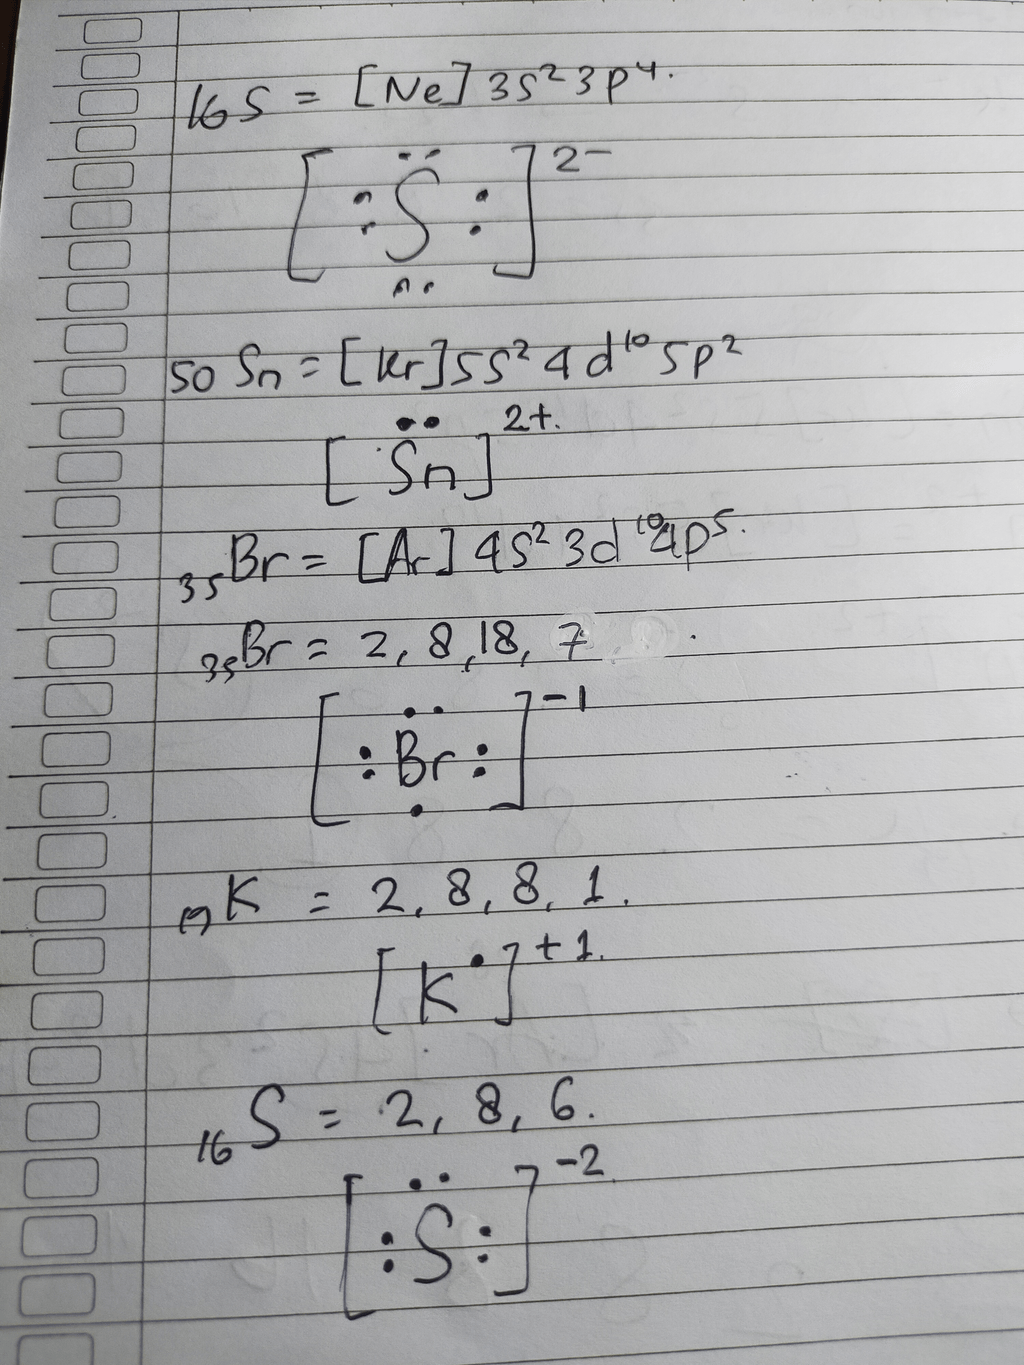 16 S = [Ne] 3s² 3p⁴.
[:S̈:]²⁻
50 Sn = [Kr] 5s² 4d¹⁰ 5p²
[S̈n]²⁺.
₃₅Br = [Ar] 4s² 3d¹⁰ 4p⁵.
₃₅Br = 2, 8, 18, 7 .
[:Br:]⁻¹
₁₉K = 2, 8, 8, 1.
[K•]⁺¹.
₁₆S = 2, 8, 6.
[:S̈:]⁻²